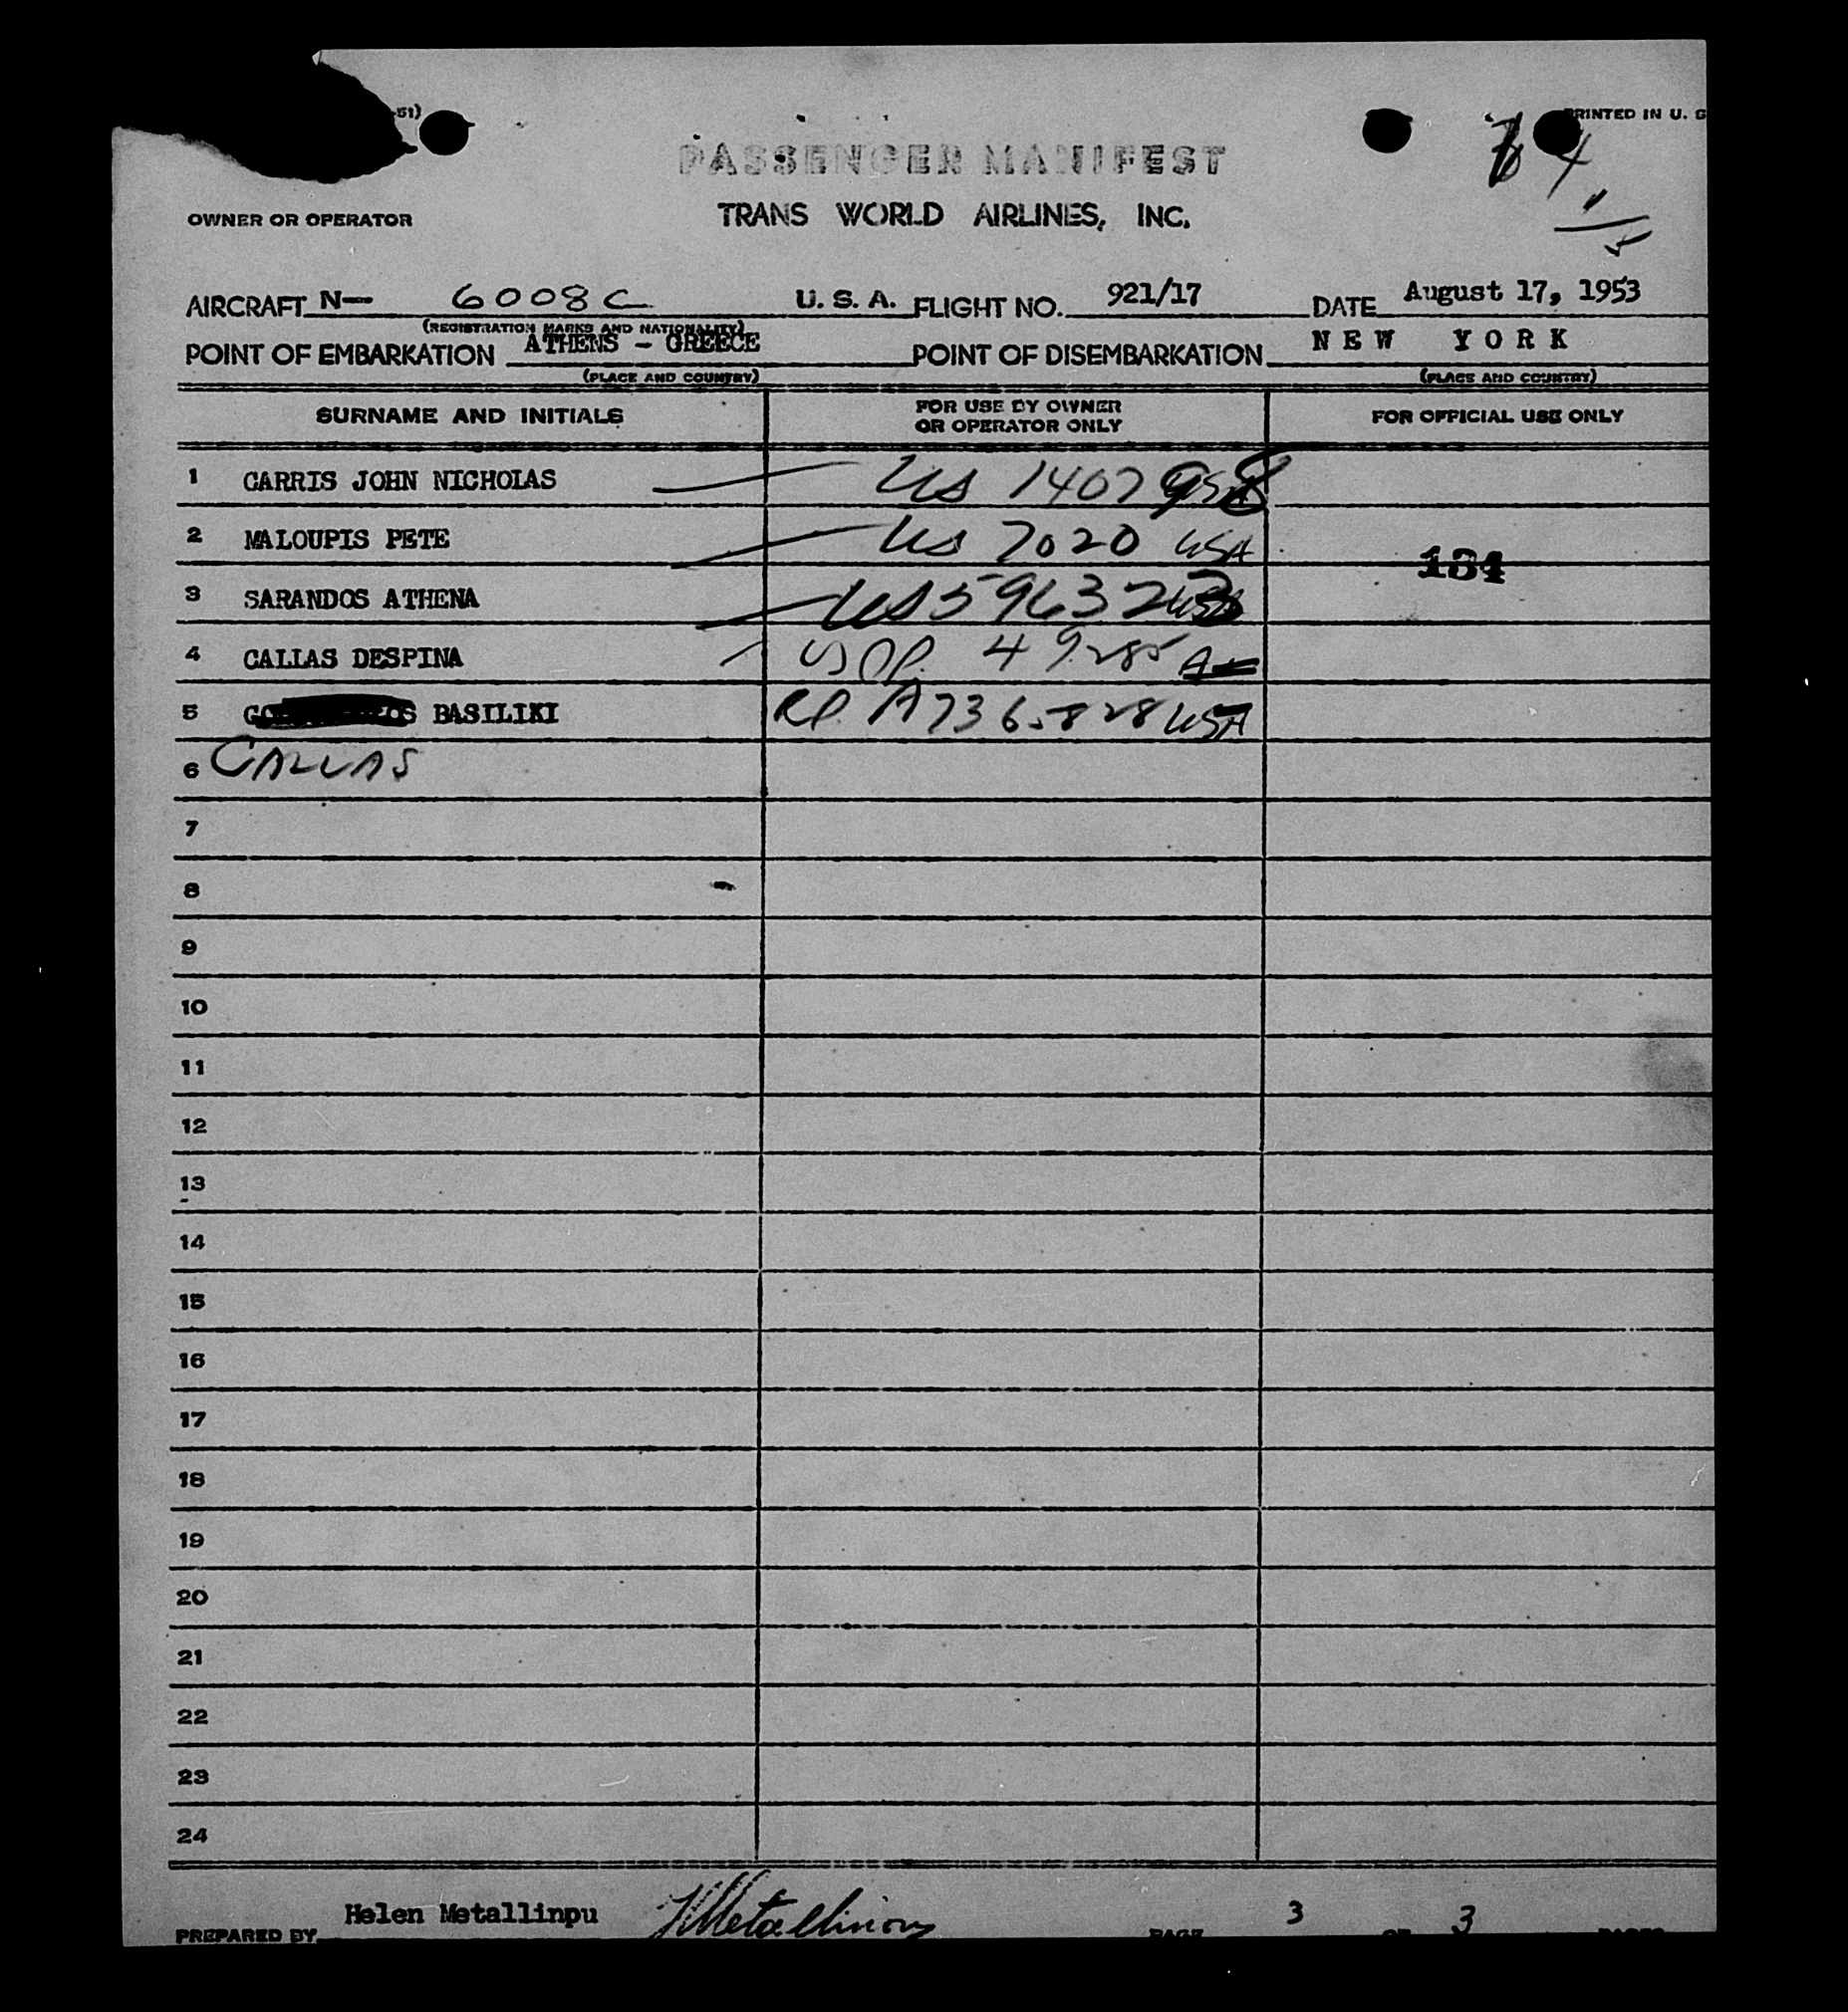 51)
PRINTED IN U. S
PASSENGER MANIFEST
OWNER OR OPERATOR
TRANS WORLD AIRLINES, INC.
AIRCRAFT N— 6008C U. S. A. FLIGHT NO. 921/17 DATE August 17, 1953
(REGISTRATION MARKS AND NATIONALITY)
POINT OF EMBARKATION ATHENS - GREECE POINT OF DISEMBARKATION NEW YORK
(PLACE AND COUNTRY) (PLACE AND COUNTRY)
SURNAME AND INITIALS FOR USE BY OWNER OR OPERATOR ONLY FOR OFFICIAL USE ONLY
1 CARRIS JOHN NICHOLAS US 140798
2 MALOUPIS PETE US 7020 USA
134
3 SARANDOS ATHENA US 596323
4 CALLAS DESPINA US PP. 49285
5 BASILIKI RP. A7365828 USA
6 CALLAS
7
8
9
10
11
12
13
14
15
16
17
18
19
20
21
22
23
24
PREPARED BY Helen Metallinpu HMetallinou PAGE 3 OF 3 PAGES